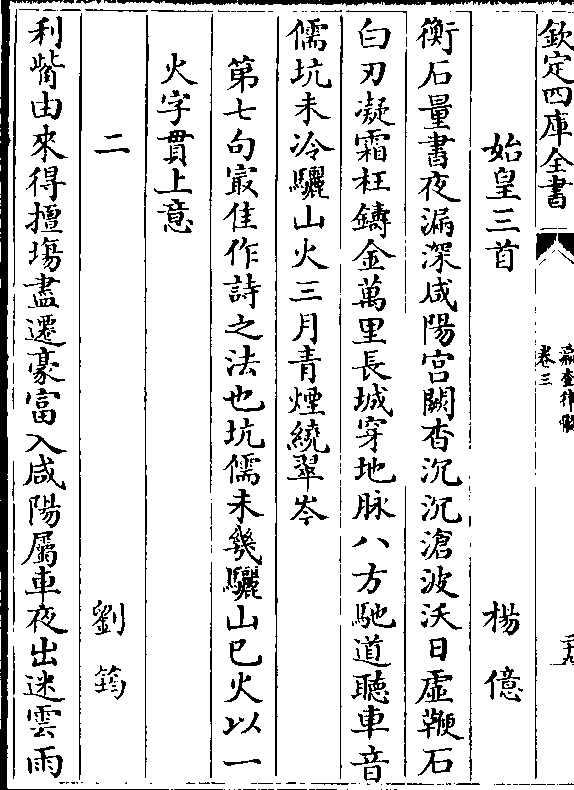 欽定四庫全書
瀛奎律髓
卷三
始皇三首 楊億
衡石量書夜漏深咸陽宫闕杳沉沉滄波沃日虚鞭石
白刃凝霜枉鑄金萬里長城穿地脉八方馳道聽車音
儒坑未冷驪山火三月青煙繞翠岑
第七句㝡佳作詩之法也坑儒未幾驪山已火以一
火字貫上意
二 劉筠
利觜由來得擅塲盡遷豪富入咸陽屬車夜出迷雲雨